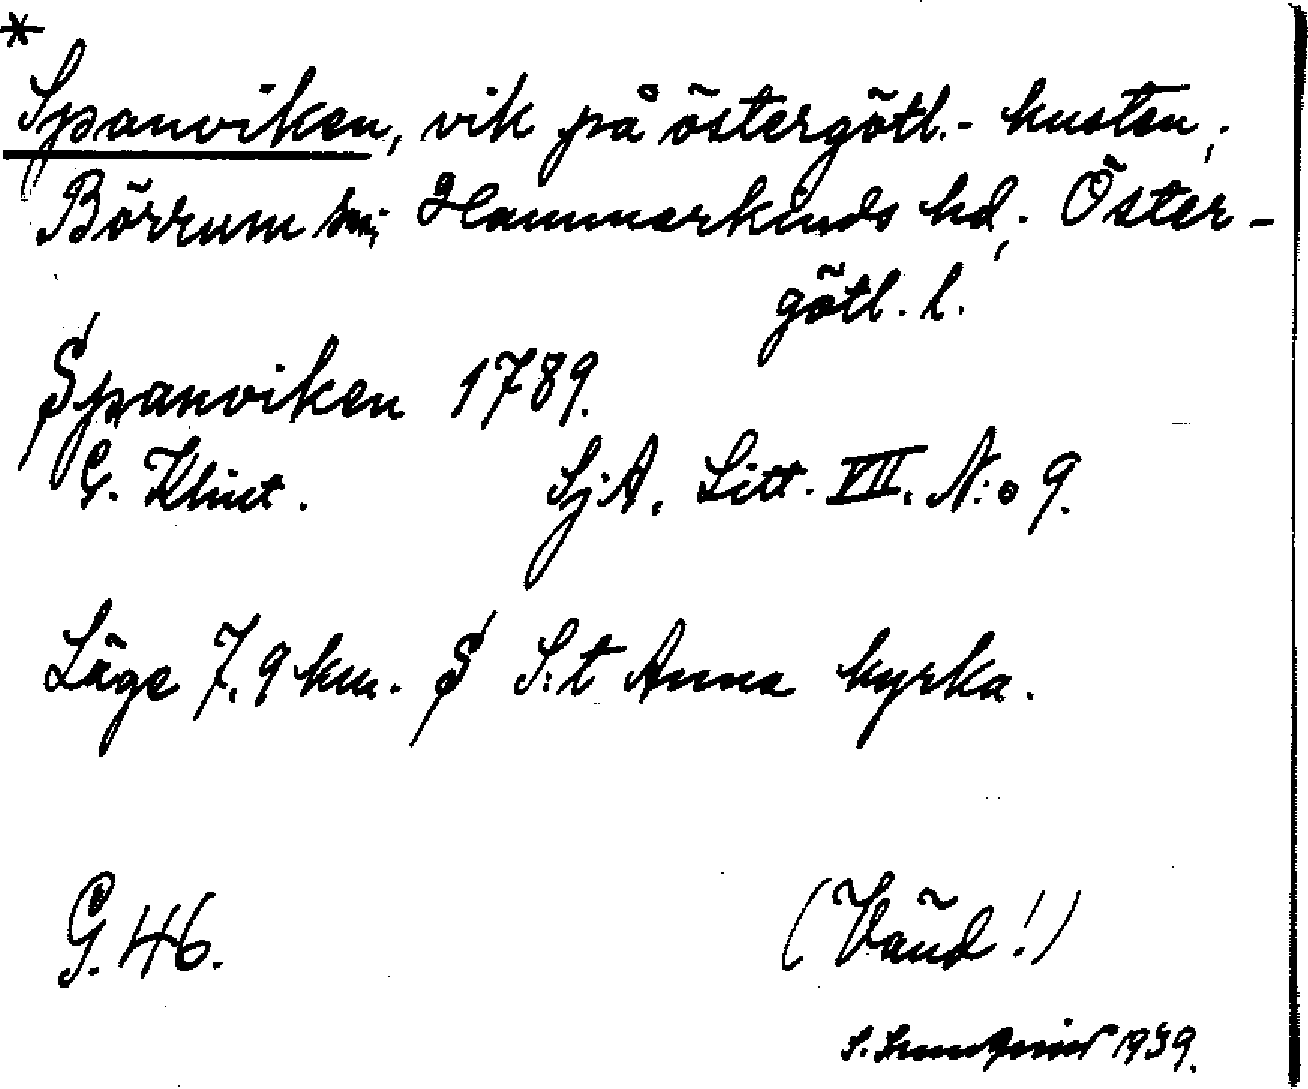 *
Spanviken, vik på östergötl.- kusten,
Börrum sn; Hammarkinds hd, Öster-
götl. l.
Spanviken 1789.
G. Klint. Sj.A. Litt. VII. N:o 9.
Läge 7,9 km. S S:t Anna kyrka.
G. 46. (Vänd!)
S. 1939.